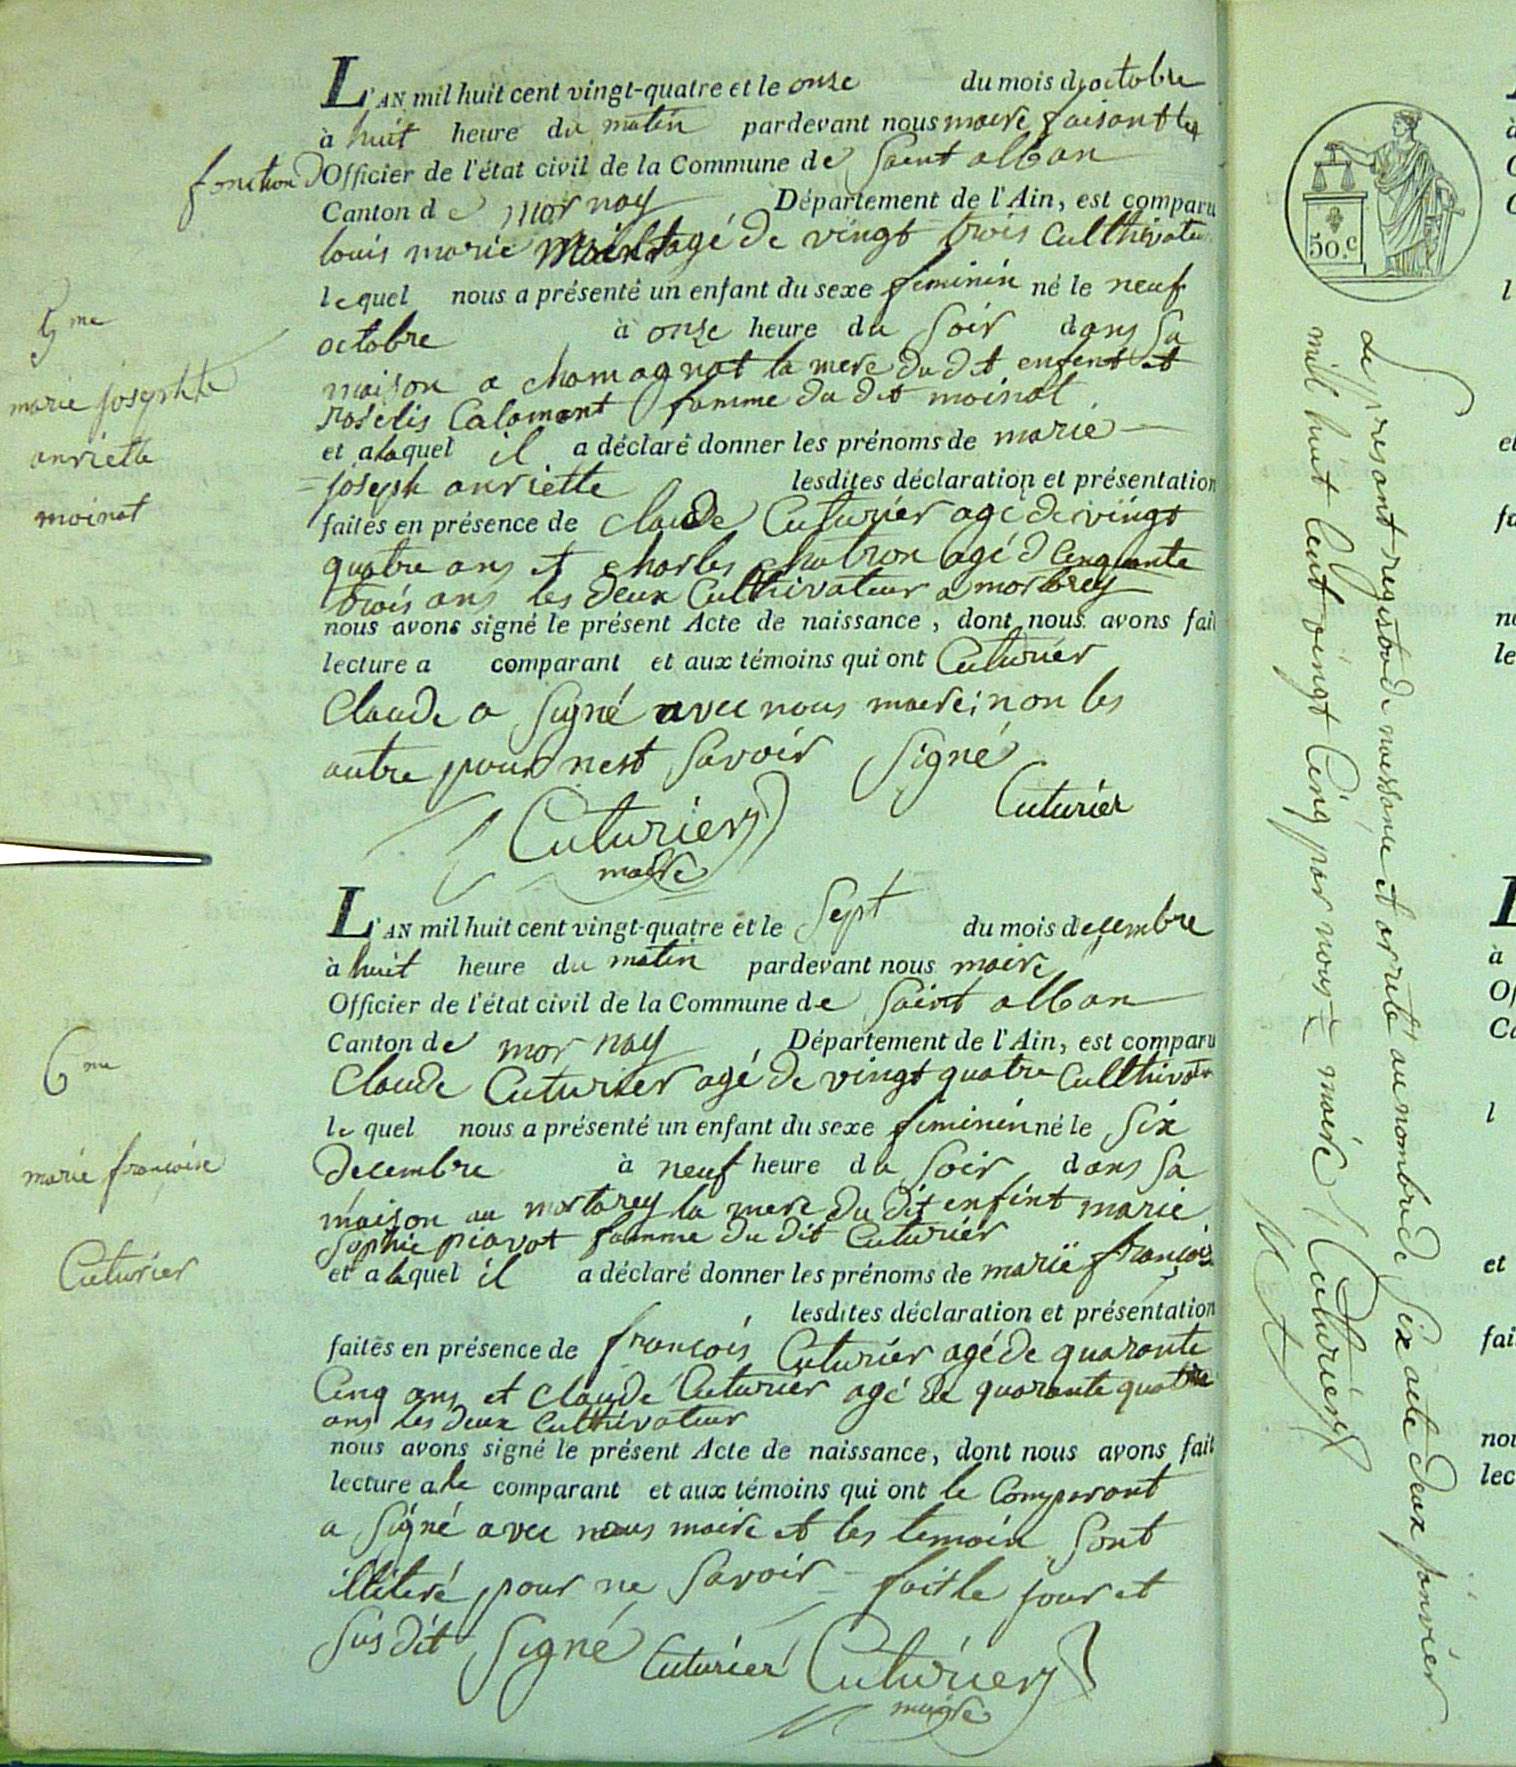 L'AN mil huit cent vingt-quatre et le onze du mois d'octobre
à huit heure du matin pardevant nous maire faisant les
fonction D Officier de l'état civil de la Commune de Saint alban
Canton de mornay Département de l'Ain, est comparu
louis marie moinat agé de vingt trois Culthivateur
lequel nous a présenté un enfant du sexe feminin né le neuf
octobre à onze heure du Soir dans Sa
maison a chamagnat la mere du dit enfent et
Calamant famme du dit moinat
et a laquel il a déclaré donner les prénoms de marie
joseph anriette lesdites déclaration et présentation
faites en présence de claude Cuturier agé de vingt
quatre ans et charles chatron agé d Cinquante
trois ans les deux Culthivateur a mortarey
nous avons signé le présent Acte de naissance, dont nous avons fait
lecture a comparant et aux témoins qui ont Cuturier
Claude a Signé avec nous maire; non les
autre pour nest Savoir Signé
Cuturier
Cuturier
maire
5me
marie josephte
anriette
moinat
L'AN mil huit cent vingt-quatre et le Sept du mois decembre
à huit heure du matin pardevant nous maire
Officier de l'état civil de la Commune de Saint alban
Canton de mornay Département de l'Ain, est comparu
Claude Cuturier agé de vingt quatre Culthivatr
lequel nous a présenté un enfant du sexe feminin né le Six
Decembre à neuf heure du Soir dans Sa
maison au mortarey la mere du dit enfint marie
Sophie piavot famme du dit Cuturier
et a laquel il a déclaré donner les prénoms de marie françoise
lesdites déclaration et présentation
faites en présence de françois Cuturier agé de quarante
Cinq ans et Claude Cuturier agé de quarante quatre
ans les deux Culthivateur
nous avons signé le présent Acte de naissance, dont nous avons fait
lecture a le comparant et aux témoins qui ont le Comparant
a Signé avec nous maire et les temoin Sont
illiteré pour ne Savoir = fait le jour et
Sus dit Signé Cuturier Cuturier
maire
6me
marie françoise
Cuturier
50.c
Le presant registre de naissance et arreté au nombre de Six acte deux janvier
mill huit Cent vingt Cinq par nous = maire Cuturier